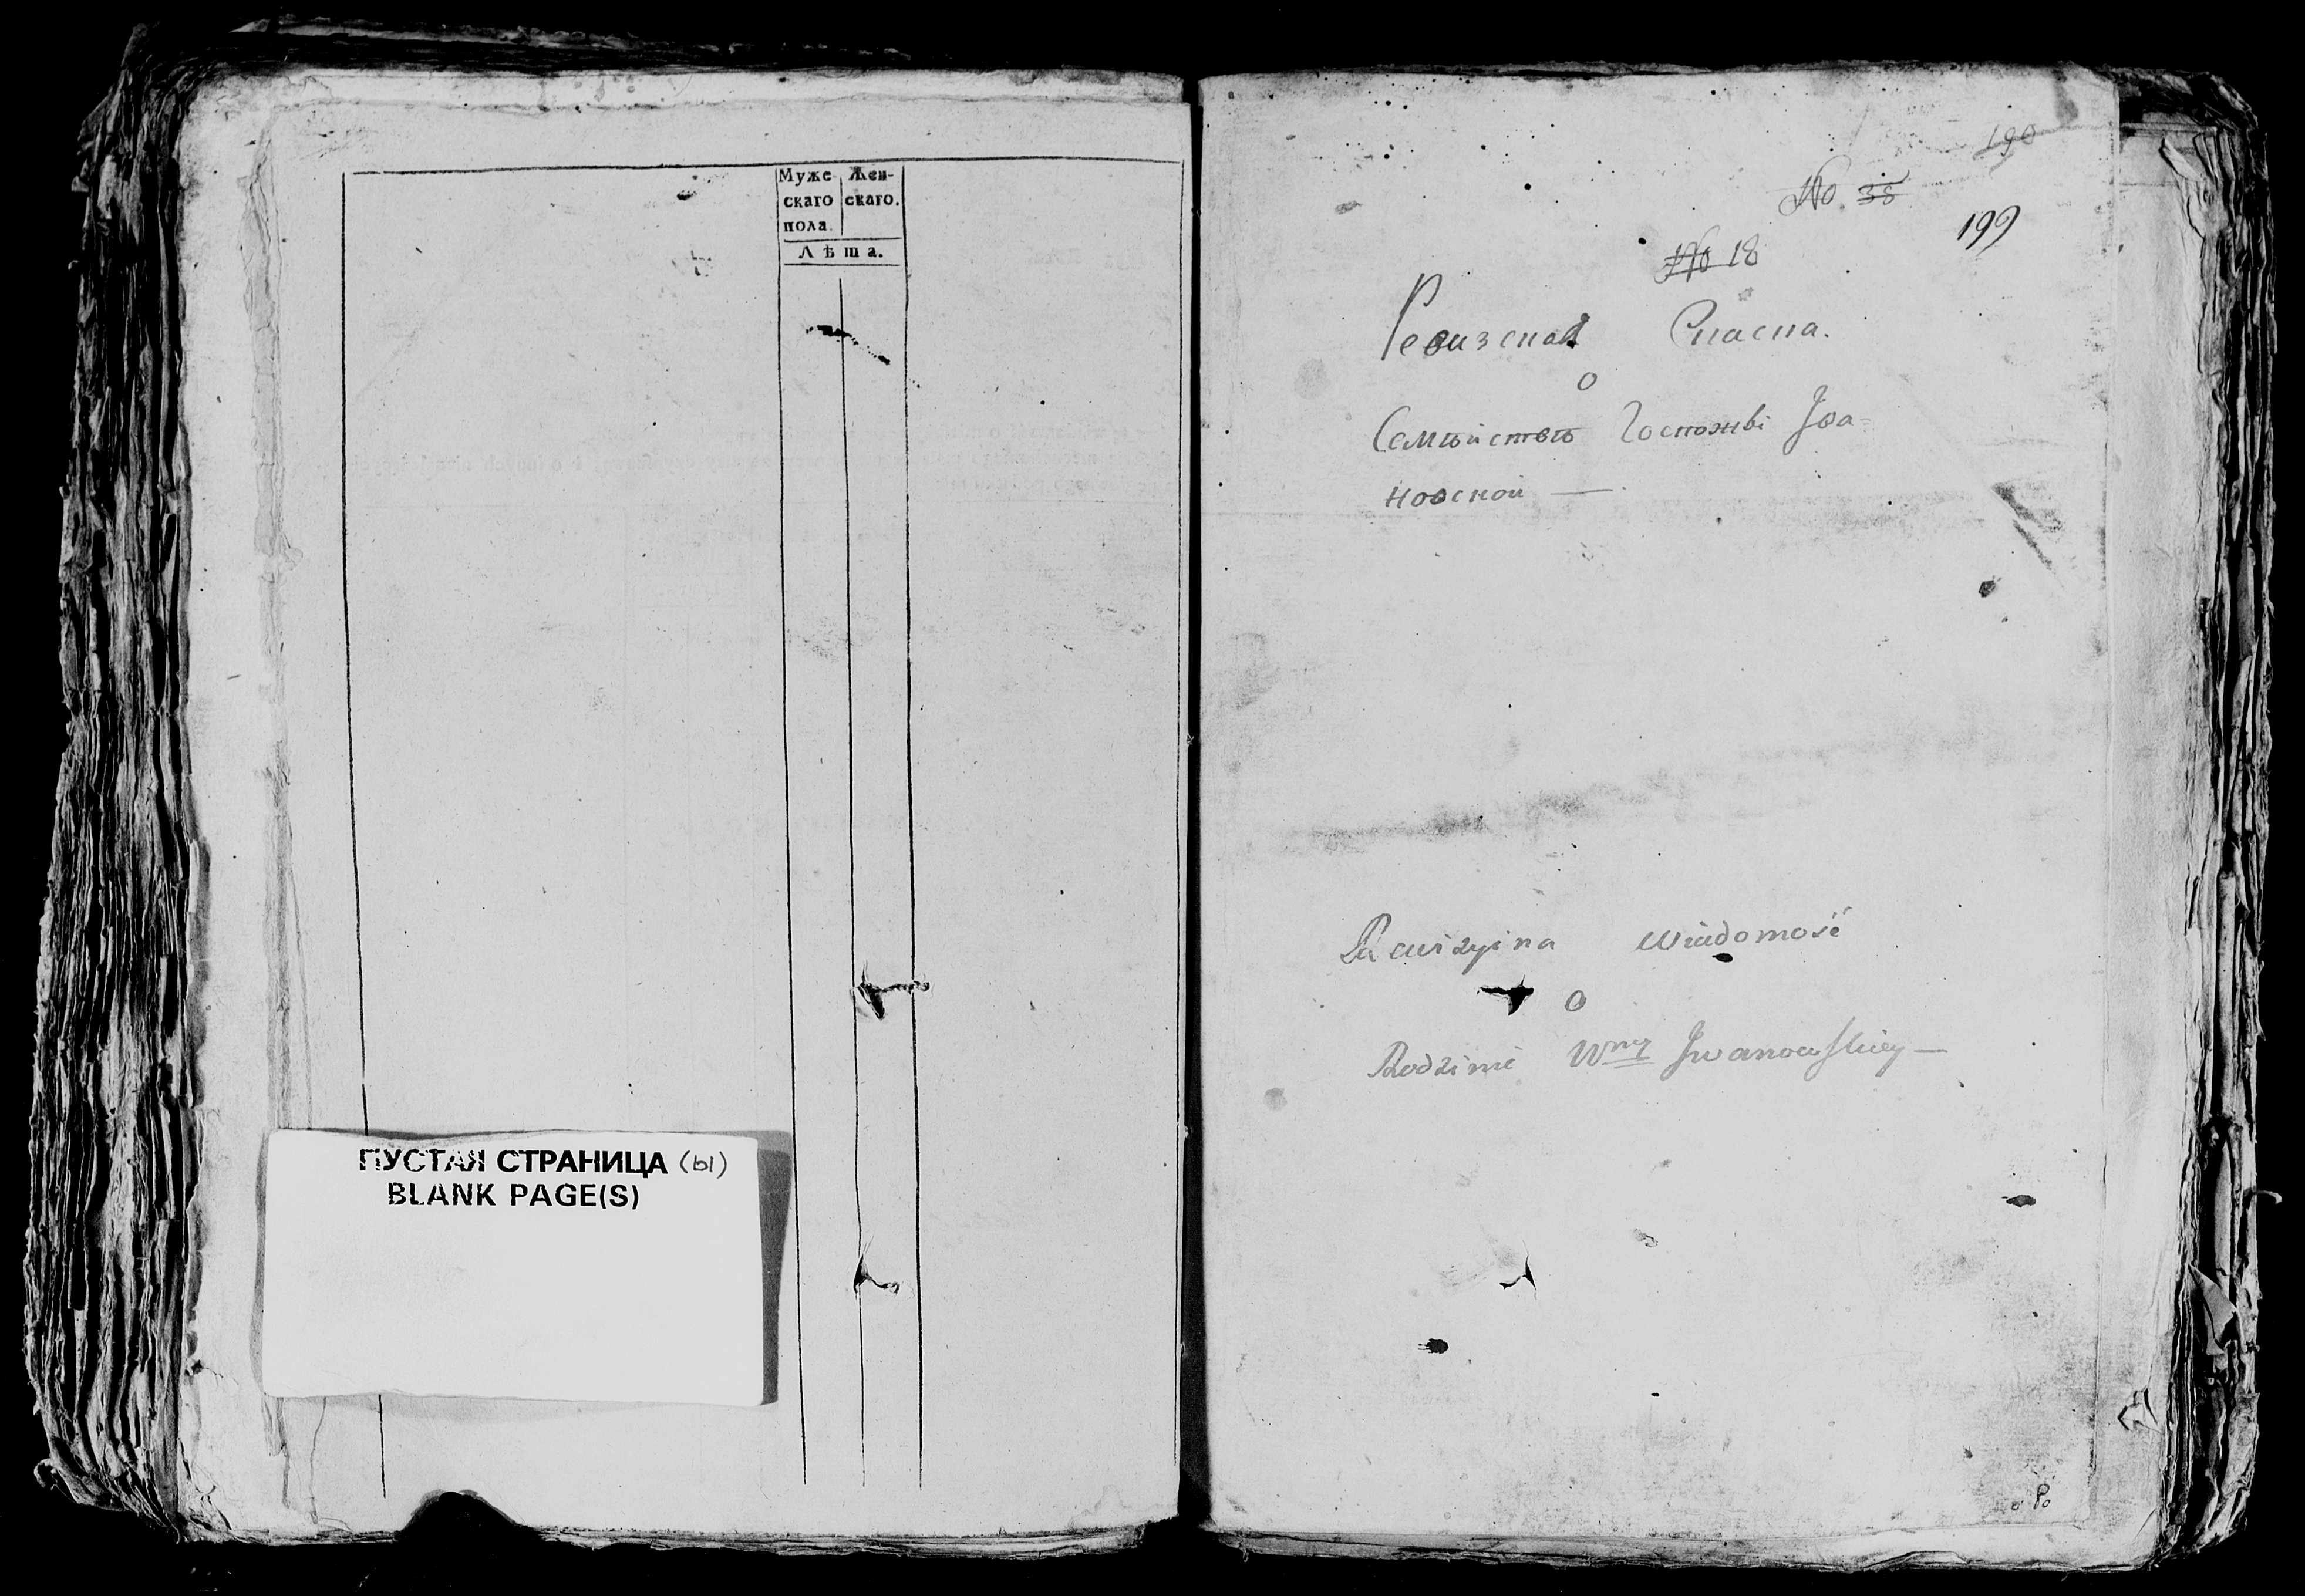 Муже- Жен-
скаго скаго.
пола.
Лѣта.
ПУСТАЯ СТРАНИЦА (ы)
BLANK PAGE(S)
190
No. 38
199
No 18
Ревизская Сказка.
о
Семѣйствѣ Госпожи Ива=
новской —
Rewizyina Wiadomość
o
Rodzinie Wney Iwanowskiey —